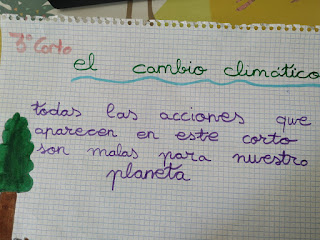 3º Corto
el cambio climático
todas las acciones que
aparecen en este corto
son malas para nuestro
planeta